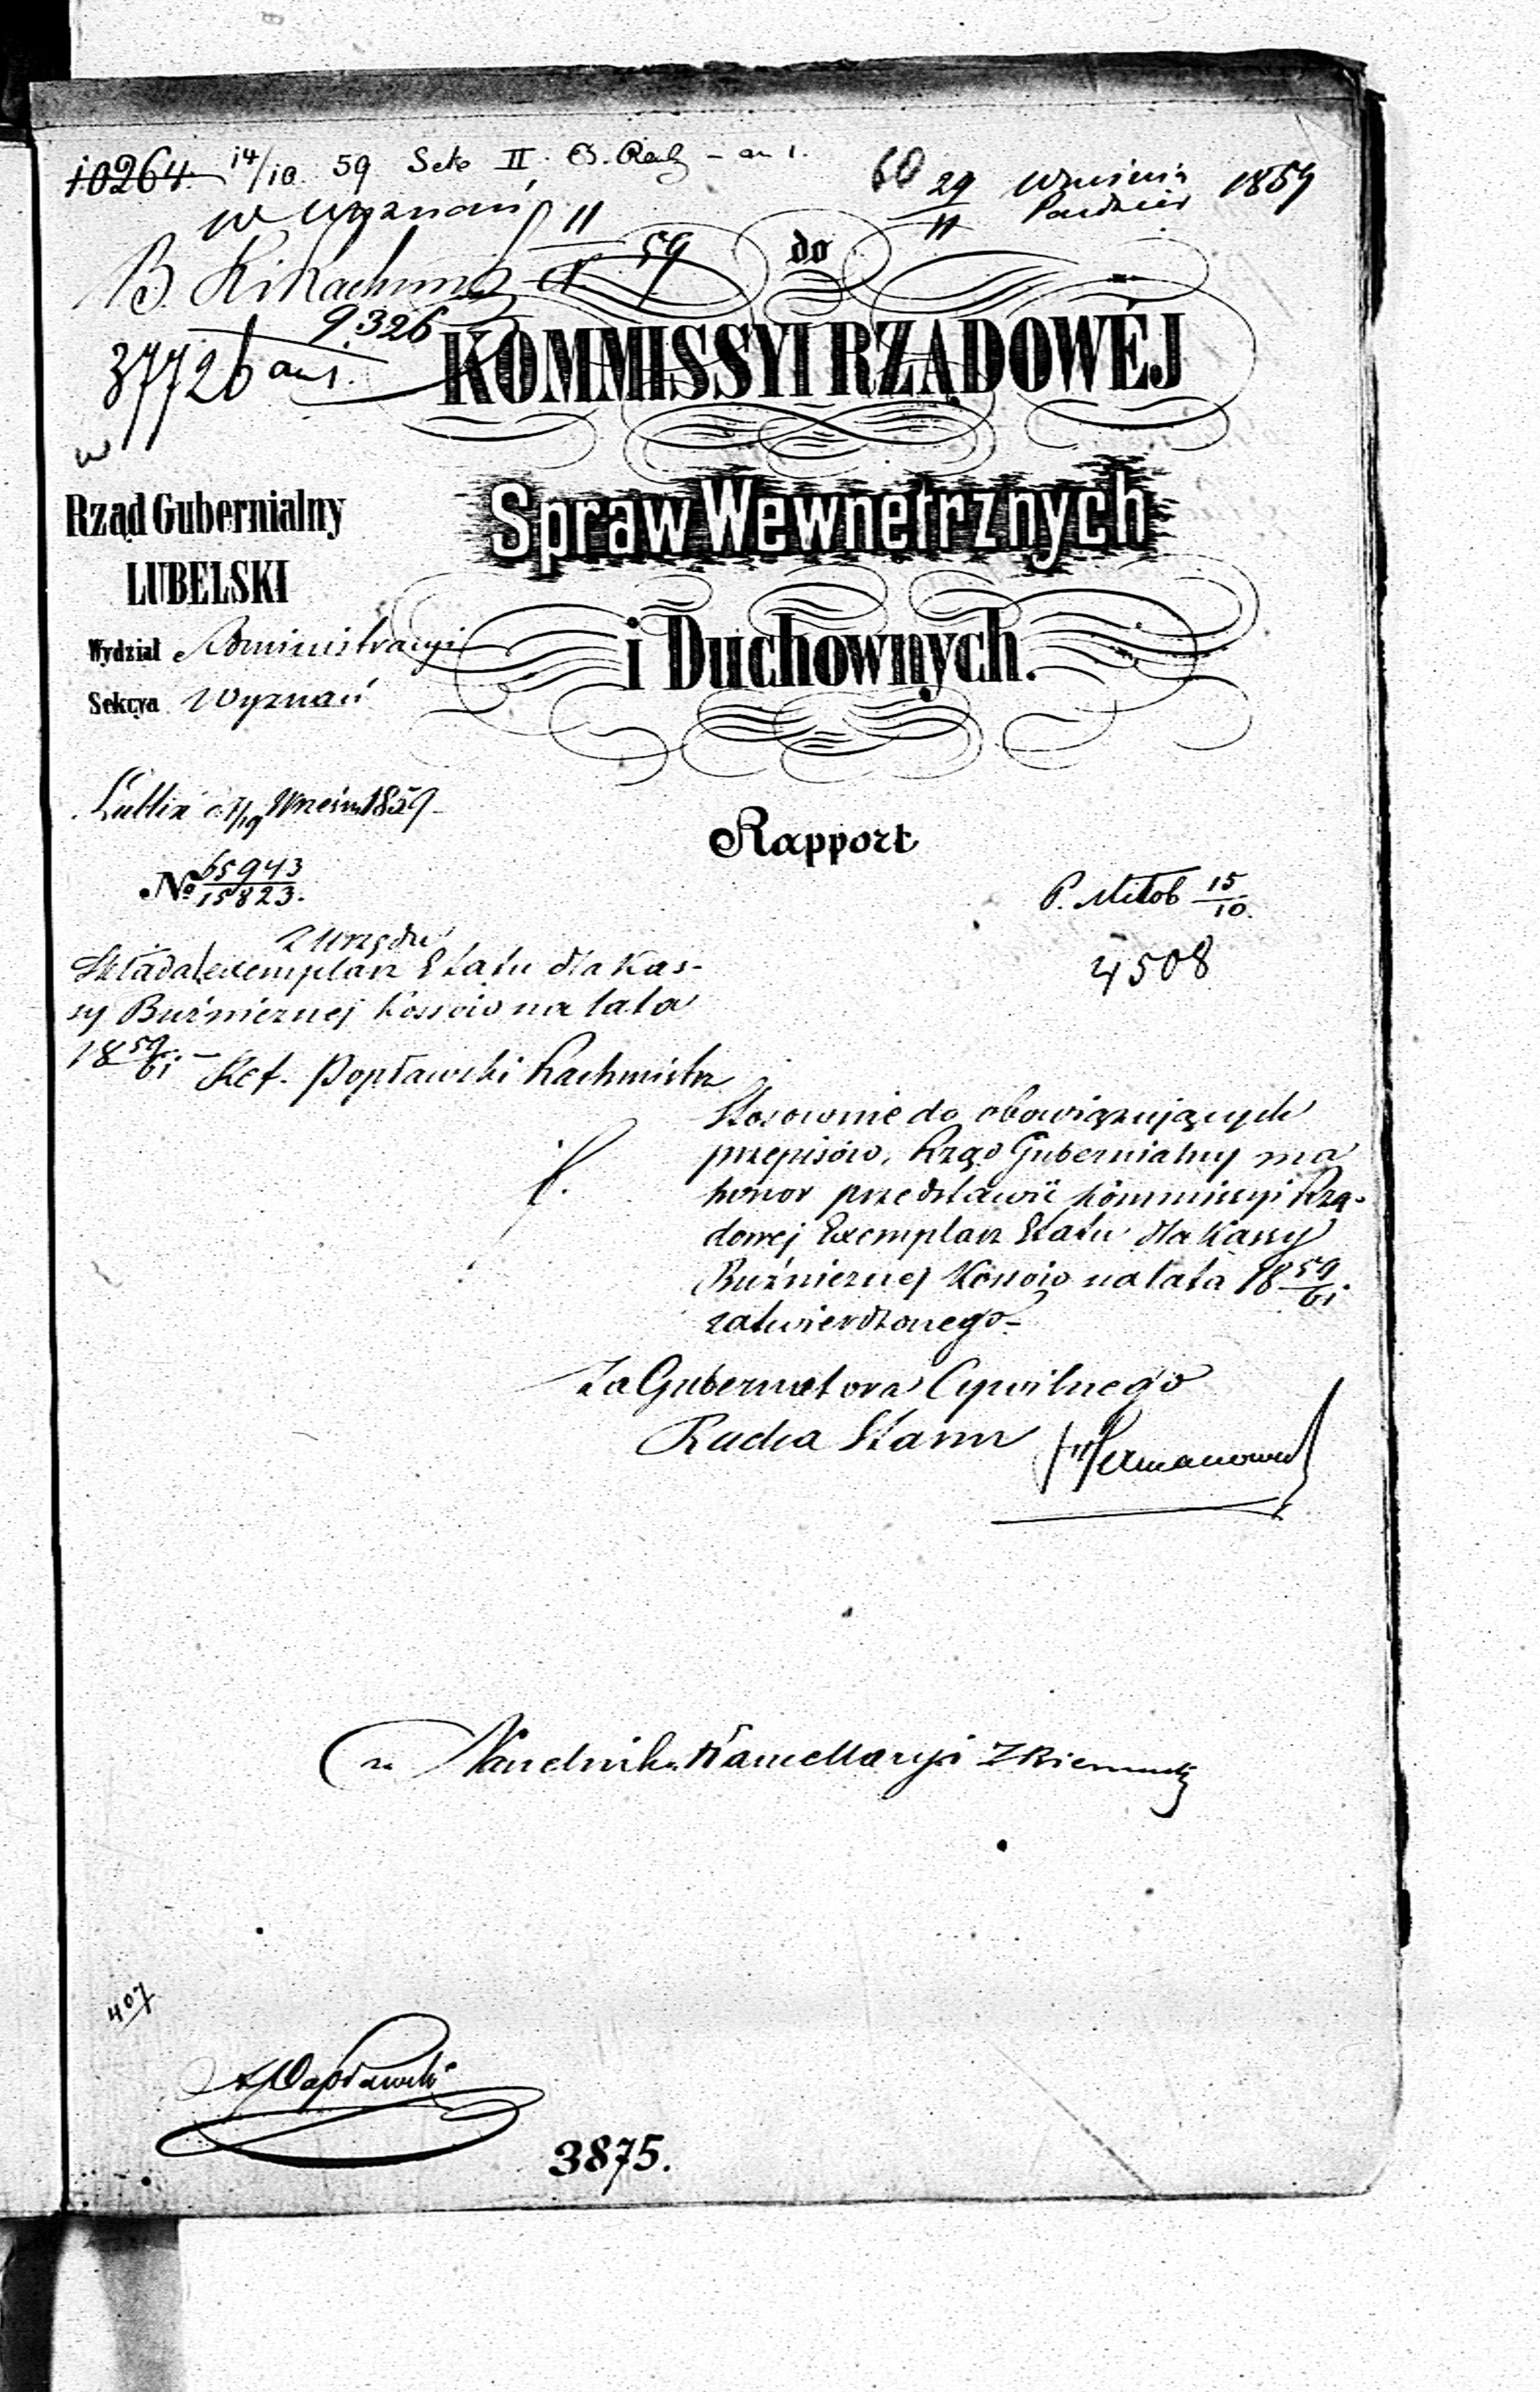 10264. 14/10 59 Sek II.
29/11 Września Paździer 1859
w Wyznań 11
59
do
9.326
KOMMISSYI RZĄDOWÉJ
37726 an 1.
w
Spraw Wewnętrznych
Rząd Gubernialny
LUBELSKI
i Duchownych.
Wydział Administracyi
Sekcya Wyznań
Lublin d. 7/19 Wrześn. 1859
Rapport
№ 65943/15823.
P. Mitob 15/10.
4508
z Urzędu
Składa exemplarz Etatu dla Kas-
sy Buźnicznej Kossow na lata
1859/61. –
Ref. Popławski Rachmistrz
Stosownie do obowiązujących
przepisów, Rząd Gubernialny ma
honor przedstawić Kommissyi Rzą-
dowej Exemplarz Etatu dla Kassy
Buźnicznej Kossow na lata 1859/61.
zatwierdzonego –
Za Gubernatora Cywilnego
Radca Stanu
za Naczelnika Kancellaryi
407
Popławski
3875.